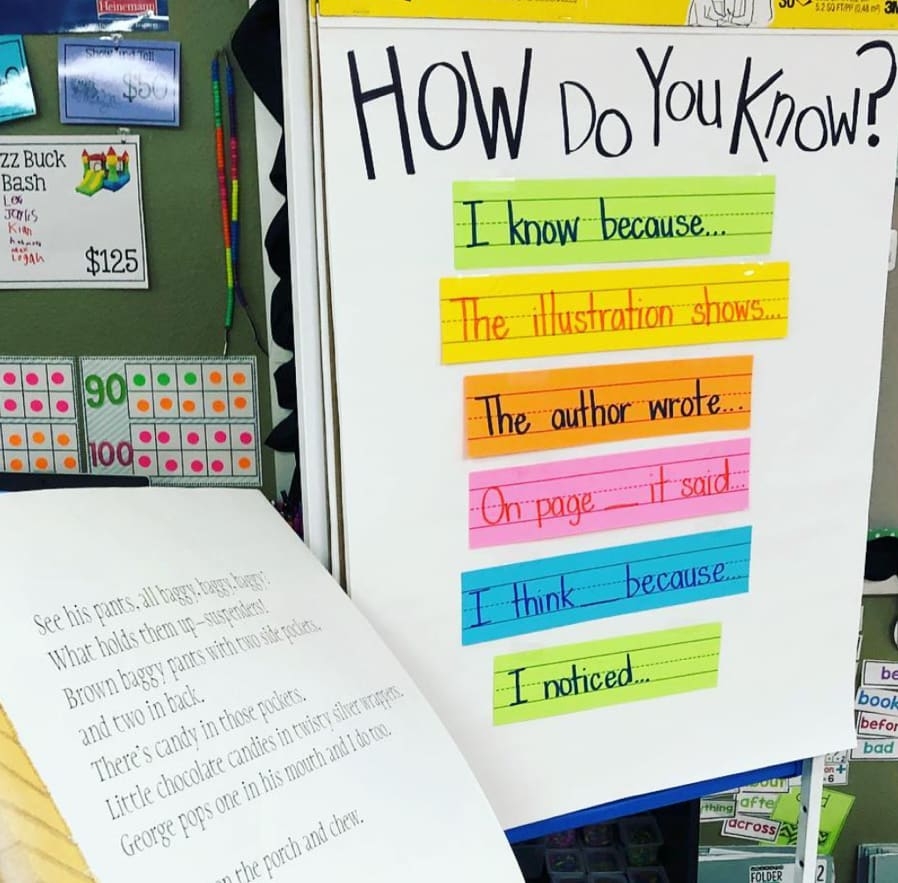 Heinemann
Show and Tell
$50
ZZ Buck
Bash
Logan
$125
90
100
30
5.2 SQ FT/PP (0,48 m²)
HOW DO YOU KNOW?
I know because...
The illustration shows...
The author wrote...
On page __ it said...
I think __ because...
I noticed...
See his pants, all baggy, baggy, baggy!
What holds them up—suspenders!
Brown baggy pants with two side pockets,
and two in back.
There's candy in those pockets.
Little chocolate candies in twisty silver wrappers.
George pops one in his mouth and I do too.
the porch and chew.
be
book
befor
bad
on
6
thing
afte
across
FOLDER
2